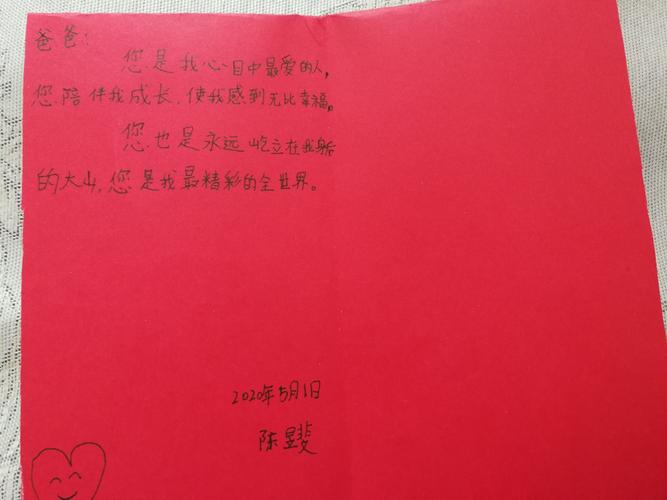 爸爸:
您是我心目中最爱的人,
您陪伴我成长,使我感到无比幸福。
您也是永远屹立在我身后
的大山,您是我最精彩的全世界。
2020年5月1日
陈昱斐